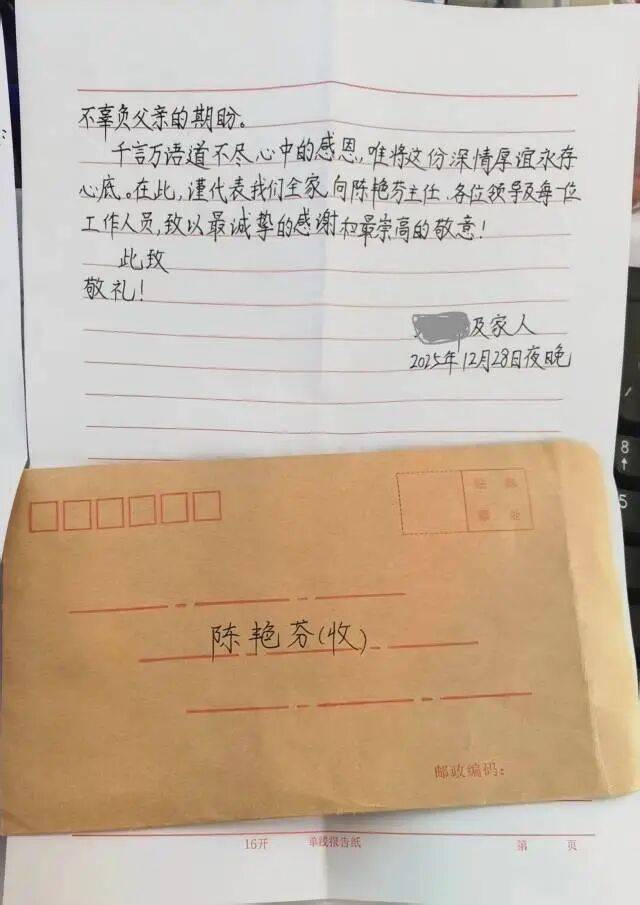 不辜负父亲的期盼。
千言万语道不尽心中的感恩,唯将这份深情厚谊永存
心底。在此,谨代表我们全家,向陈艳芬主任、各位领导及每一位
工作人员,致以最诚挚的感谢和最崇高的敬意!
此致
敬礼!
及家人
2025年12月28日夜晚
陈艳芬(收)
邮政编码:
16开 单线报告纸 第 页
8
5